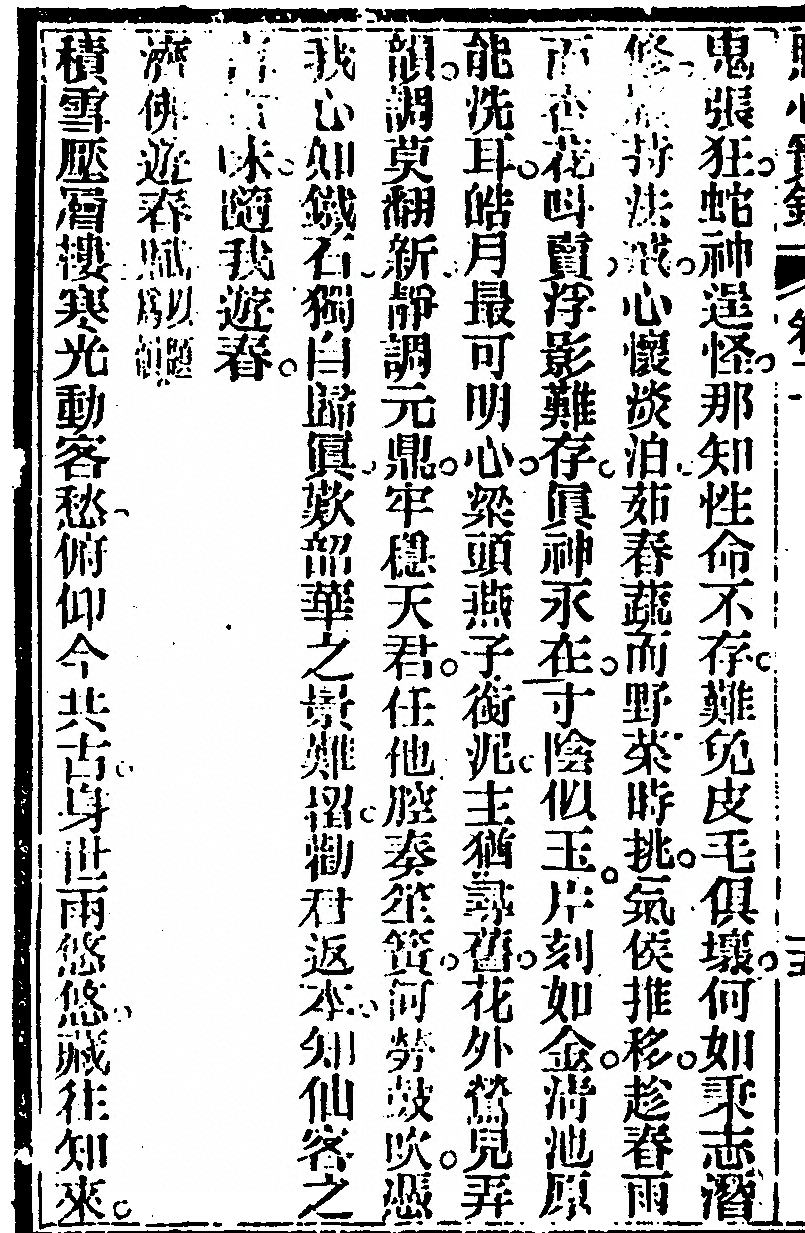 心寶
鬼張狂。蛇神逞怪。那知性命不存。難免皮毛俱壞。何如秉志潛
修。持法戒。心懷淡泊。茹春蔬而野菜時挑。氣候推移。趁春雨
而杏花叫賣。浮影難存。眞神永在。寸陰似玉。片刻如金。清池原
能洗耳。皓月最可明心。梁頭燕子銜泥。主猶尋舊。花外鶯兒弄
韻。調莫翻新。靜調元鼎。牢穩天君。任他腔奏笙簧。何勞鼓吹。憑
我心如鐵石。獨自歸眞。歎韶華之景難留。勸君返本。知仙客之
言有味。隨我遊春。
濟佛遊春賦以題爲韻
積雪壓層樓。寒光動客愁。俯仰今共古。身世兩悠悠。藏往知來。